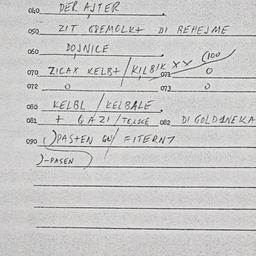 040 DER AJTER
050 ZIT GEMOLKT DI BEHEJME
060 DOJNICE
070 ZICAX KELBT / KILBIK XX (100
071 0
072 0 073 0
080 KELBL / KELBALE
081 + GAZI / TELICE 082 DI GOLDINEKA
090 1) PASTEN GU/ FITERNT
)-PASEN